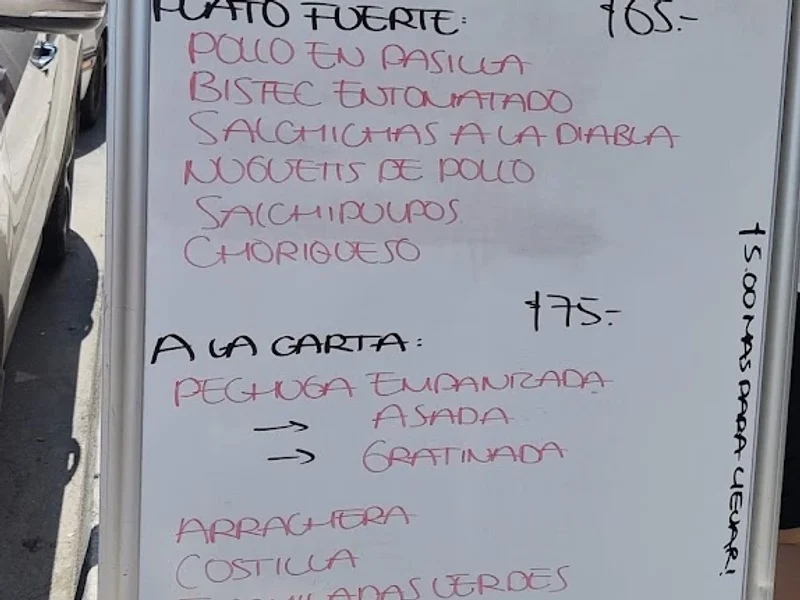 PLATO FUERTE: $65.-
POLLO EN PASILLA
BISTEC ENTOMATADO
SALCHICHAS A LA DIABLA
NUGUETTS DE POLLO
SALCHIPULPOS
CHORIQUESO
$75.-
A LA CARTA:
PECHUGA EMPANIZADA
→ ASADA
→ GRATINADA
ARRACHERA
COSTILLA
ENCHILADAS VERDES
$5.00 MAS PARA LLEVAR!